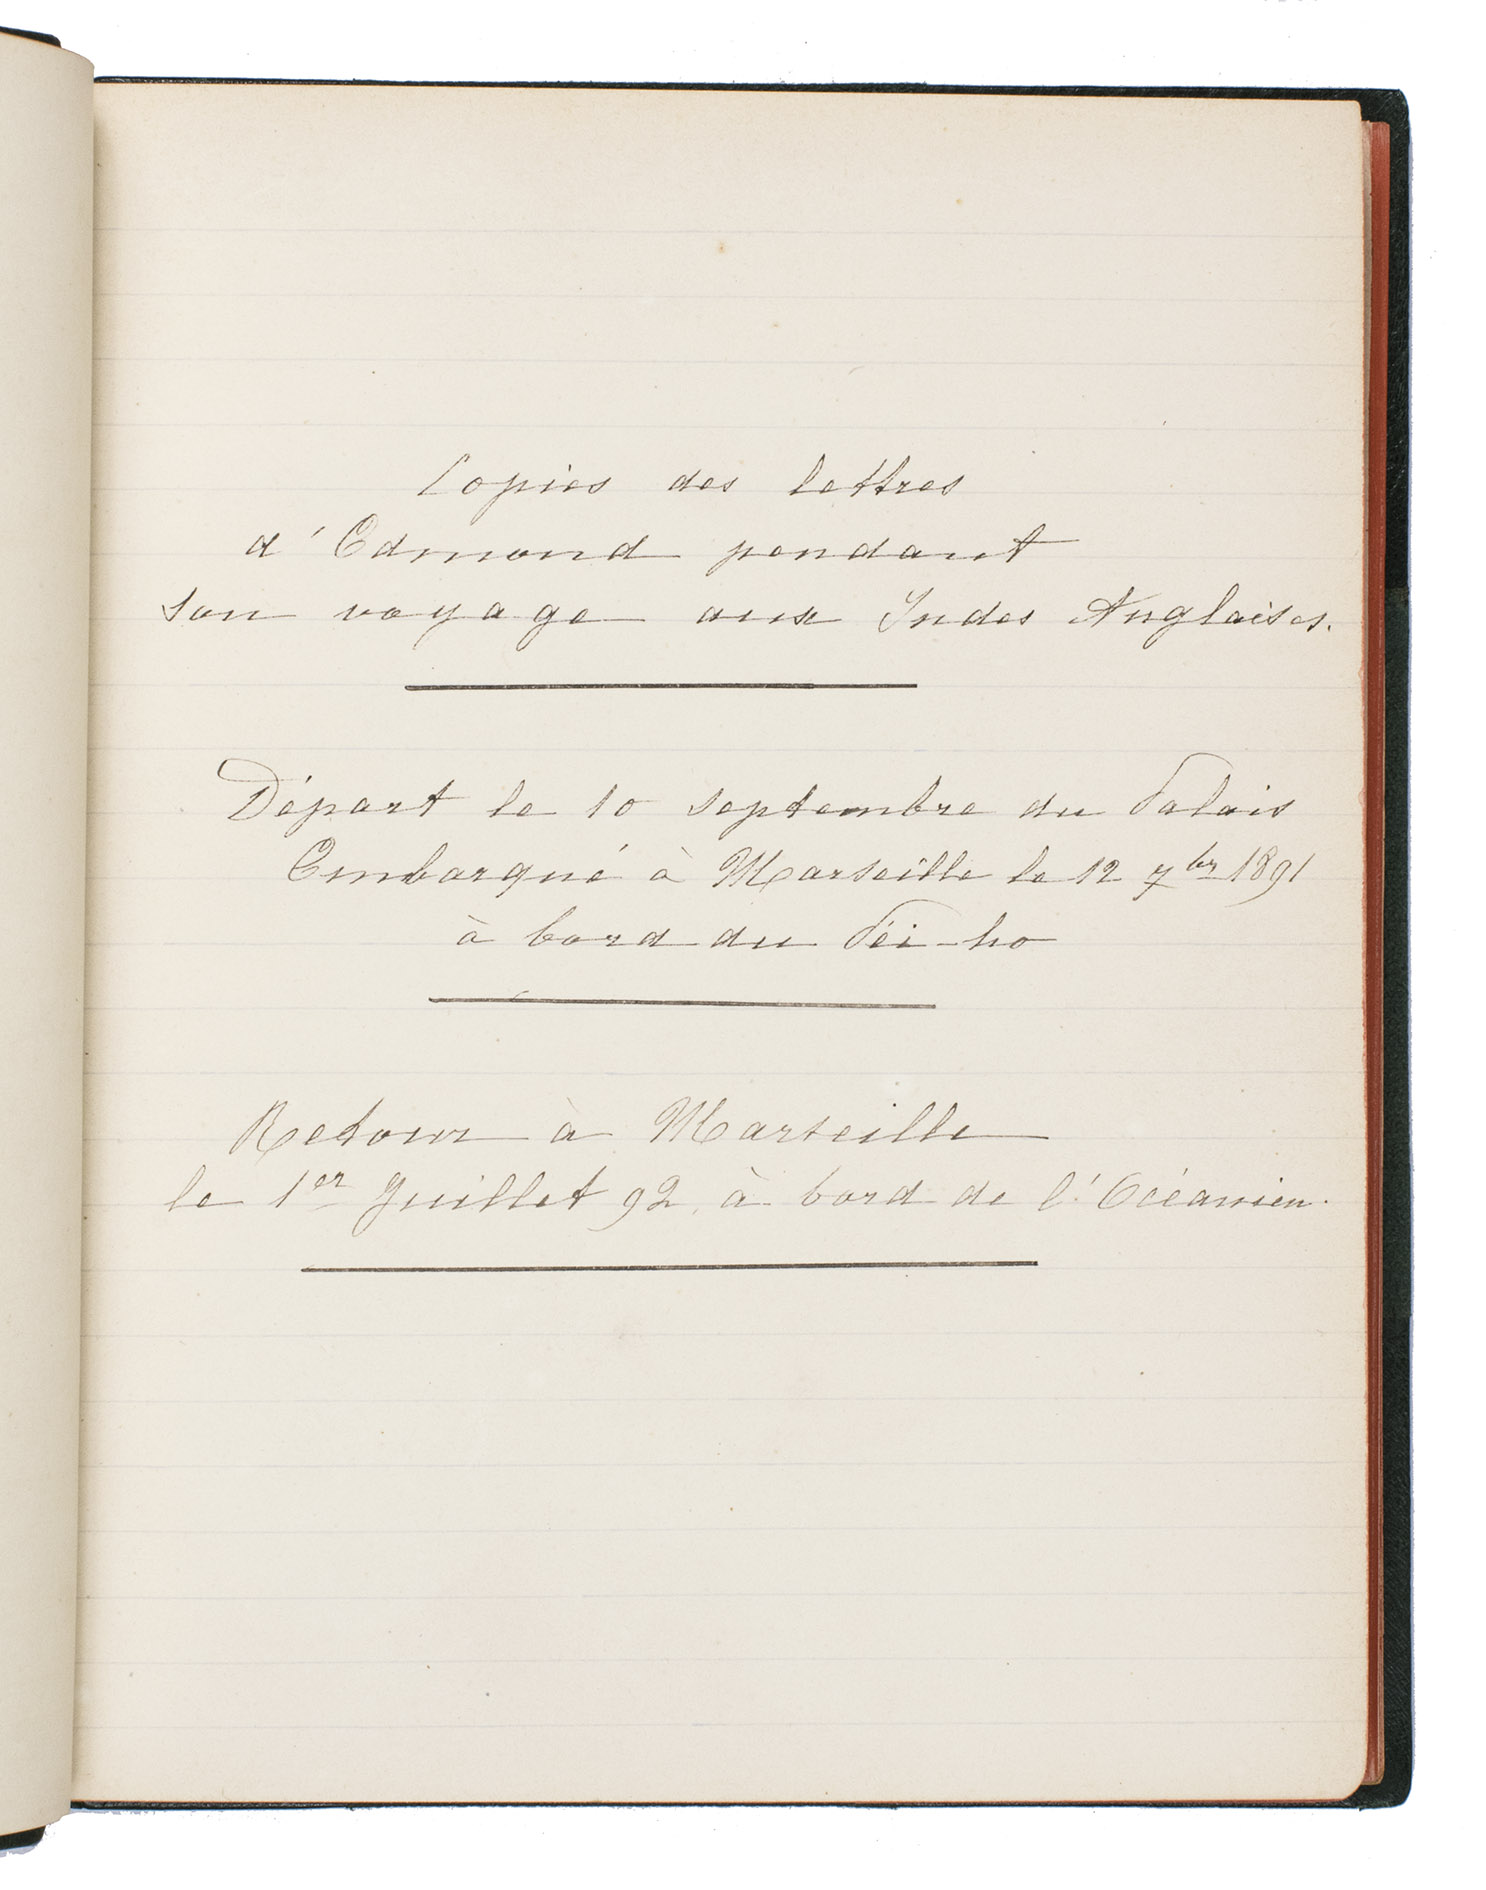 Copies des lettres
d'Edmond pendant
son voyage aux Indes Anglaises.
Départ le 10 septembre du Palais
Embarqué à Marseille le 12 7bre 1891
à bord du Péi-ho
Retour à Marseille
le 1er Juillet 92, à bord de l'Océanien.